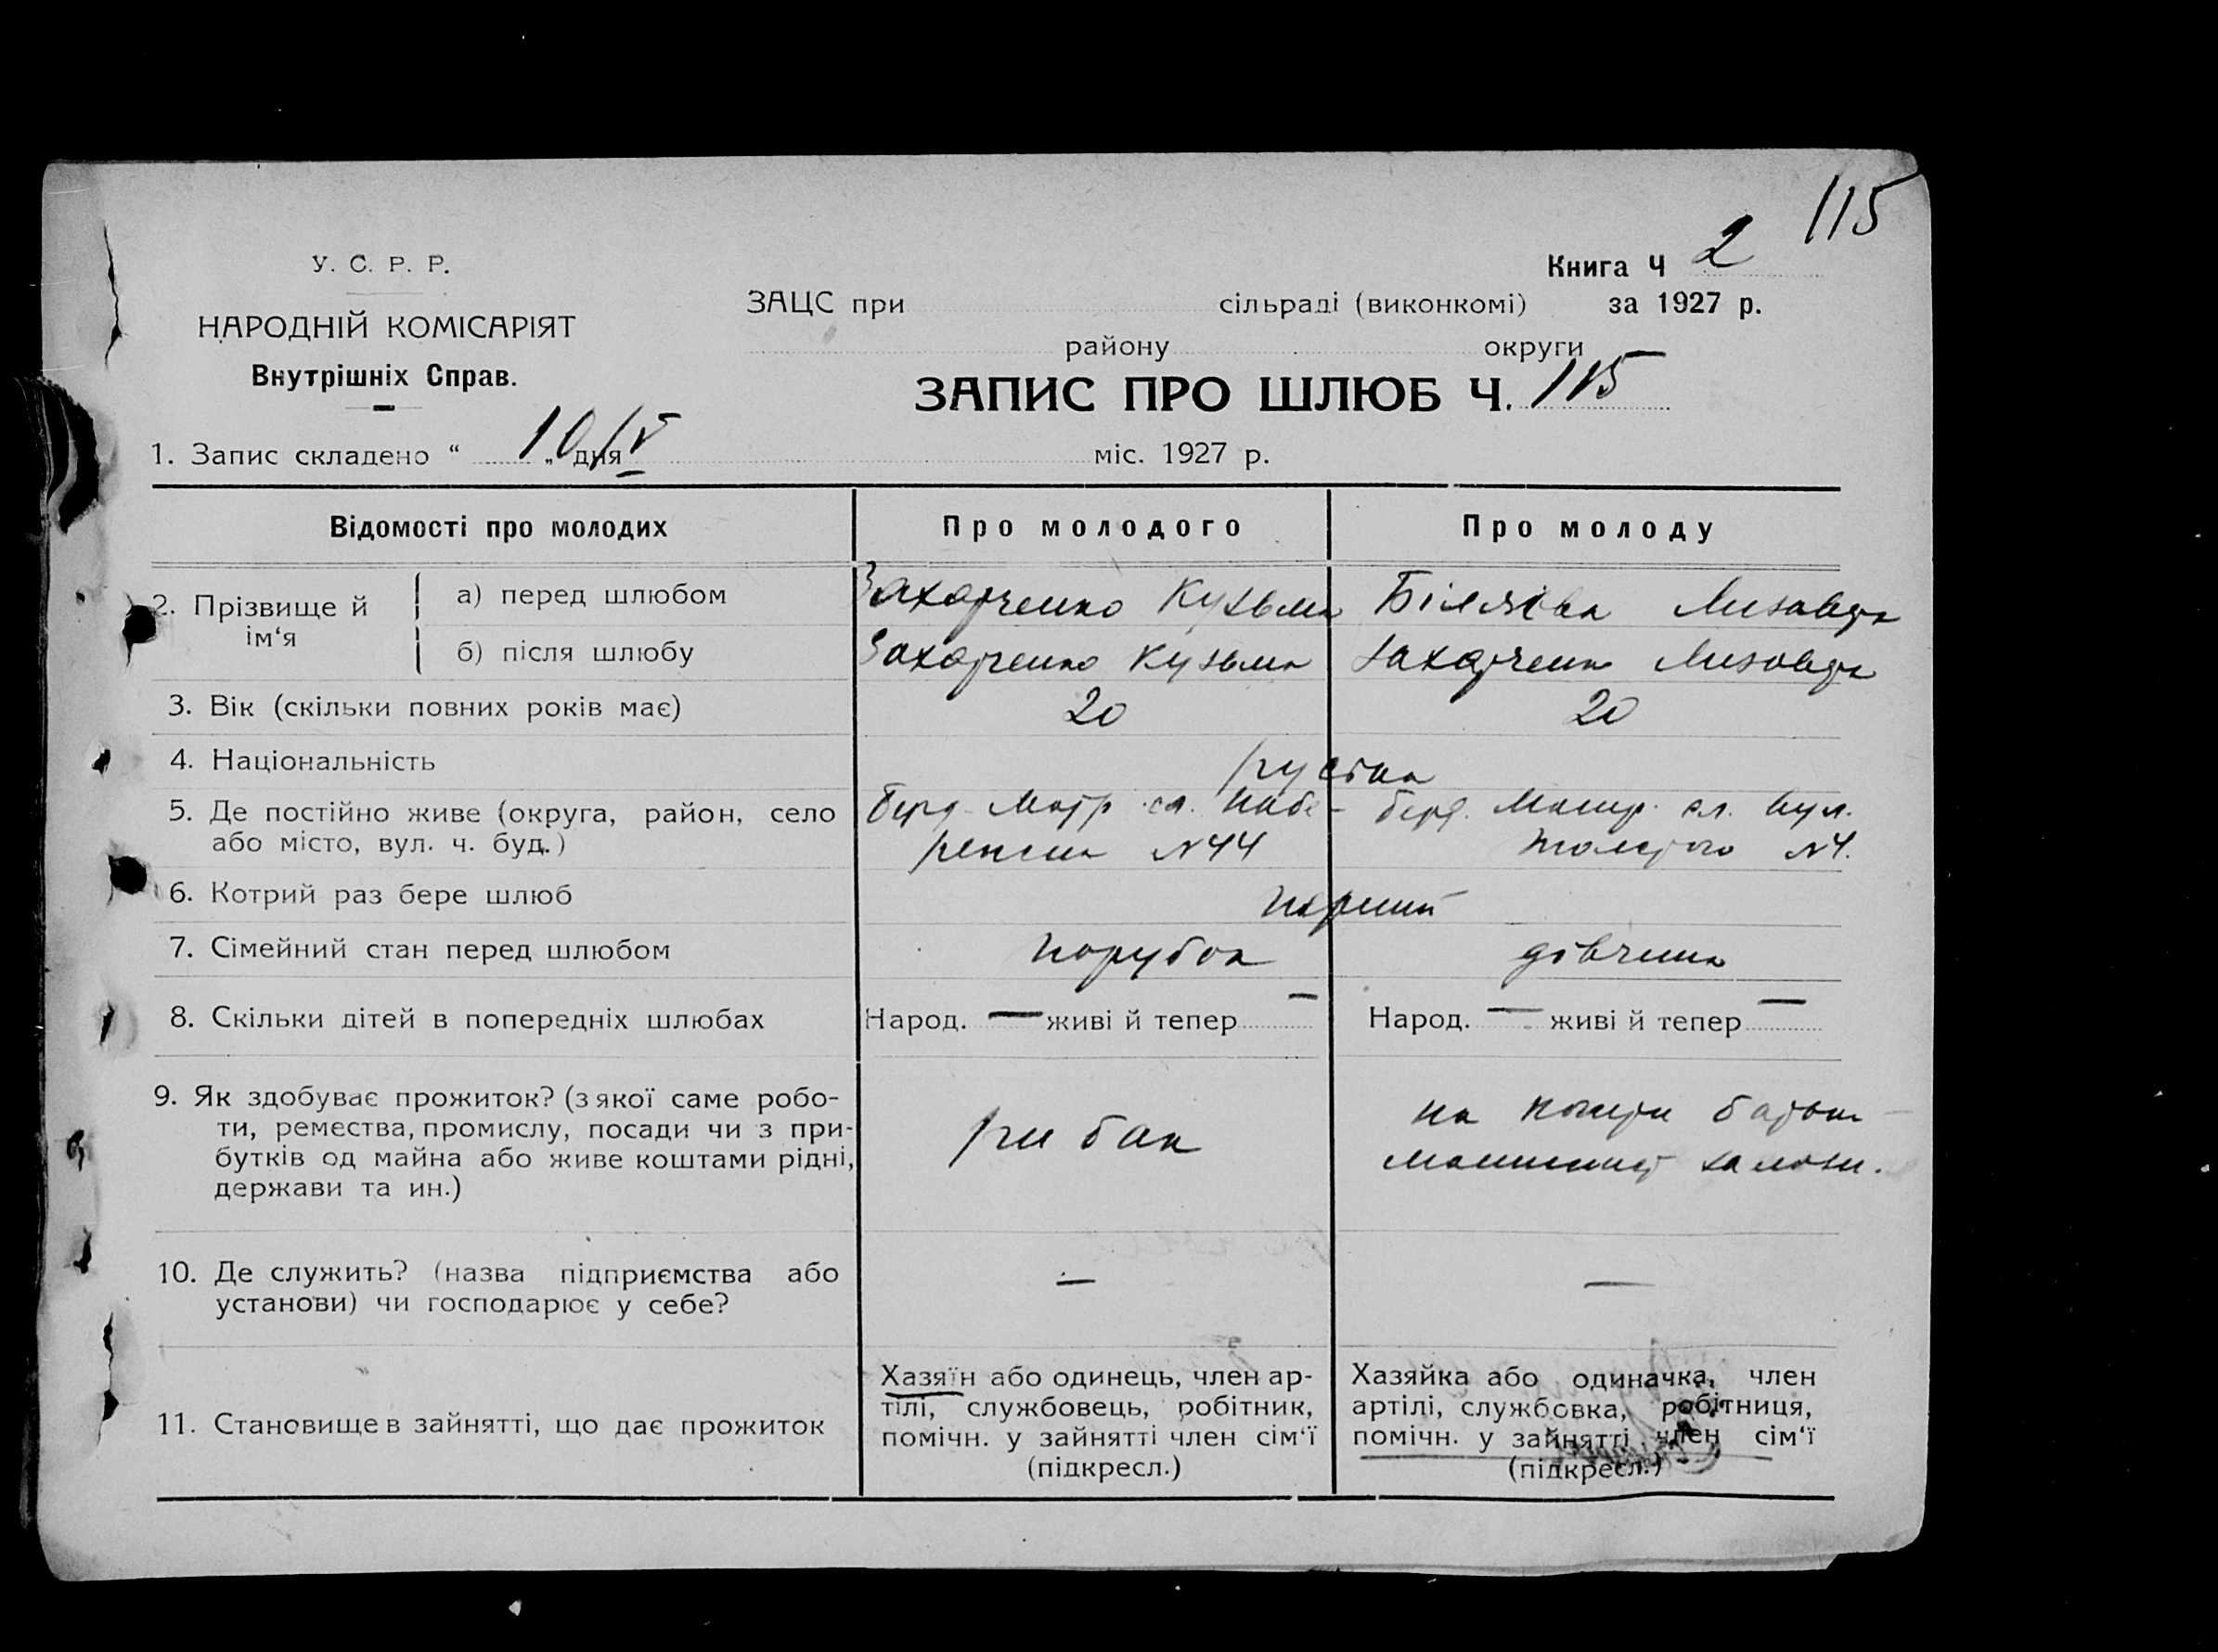 115
У. С. Р. Р.
НАРОДНІЙ КОМІСАРІЯТ
Внутрішніх Справ.
Книга Ч 2
ЗАЦС при сільраді (виконкомі) за 1927 р.
району округи
ЗАПИС ПРО ШЛЮБ Ч. 115
1. Запис складено “ 10/V „ дня міс. 1927 р.
Відомості про молодих Про молодого Про молоду
2. Прізвище й ім‘я
а) перед шлюбом Захарченко Кузьма Біляєва Лизавета
б) після шлюбу Захарченко Кузьма Захарченко Лизавета
3. Вік (скільки повних років має) 20 20
4. Національність
5. Де постійно живе (округа, район, село
або місто, вул. ч. буд.)
Берд. сл. Набе-
режна №44
Берд. сл. вул.
Толстого №4.
6. Котрий раз бере шлюб перший
7. Сімейний стан перед шлюбом парубок дівчина
8. Скільки дітей в попередніх шлюбах Народ. — живі й тепер — Народ. — живі й тепер —
9. Як здобуває прожиток? (з якої саме робо-
ти, ремества, промислу, посади чи з при-
бутків од майна або живе коштами рідні,
держави та ин.)
рибак
на кошти батька
машинист
10. Де служить? (назва підприємства або
установи) чи господарює у себе?
— —
11. Становище в зайнятті, що дає прожиток
Хазяїн або одинець, член ар-
тілі, службовець, робітник,
помічн. у зайнятті член сім‘ї
(підкресл.)
Хазяйка або одиначка, член
артілі, службовка, робітниця,
помічн. у зайнятті член сім‘ї
(підкресл.)